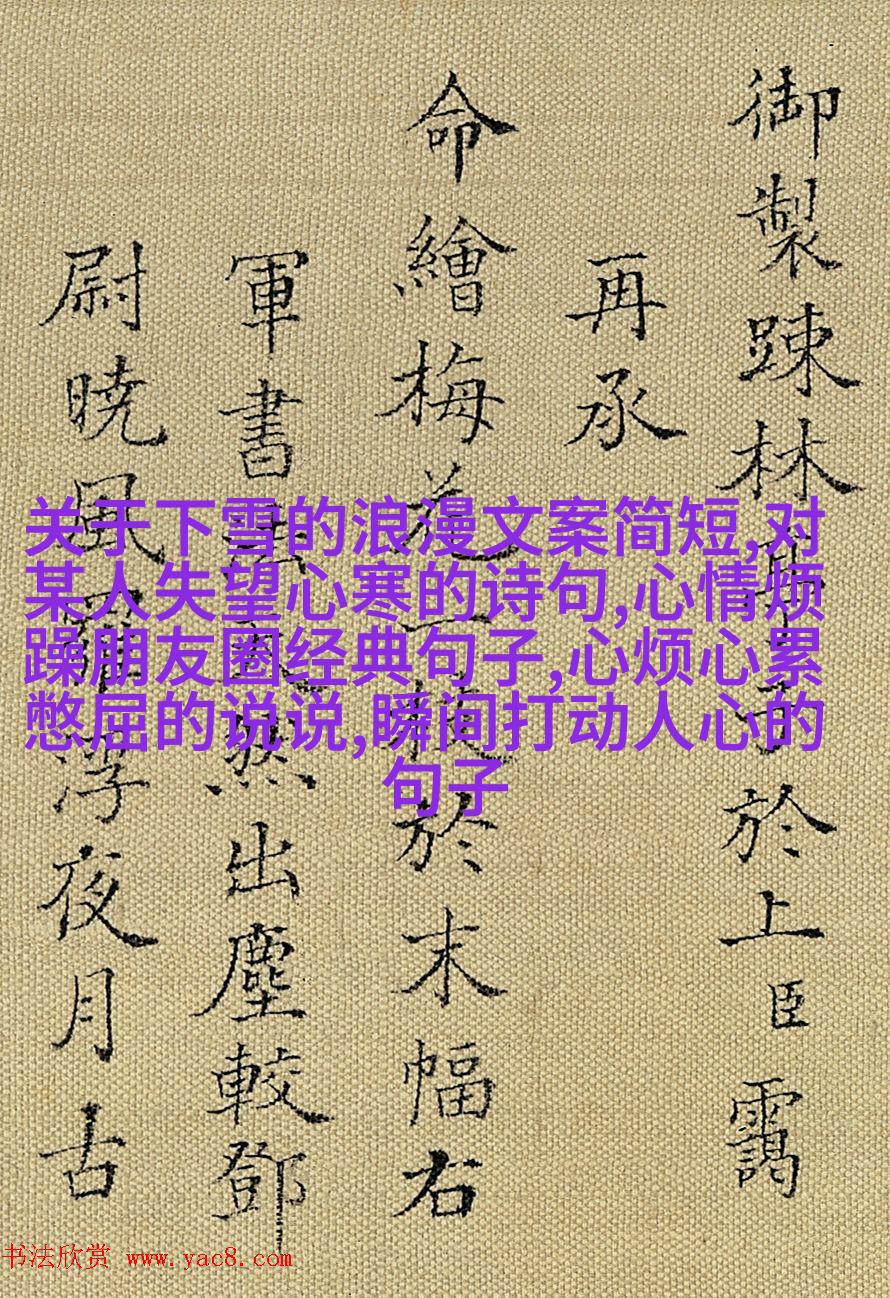 御製踈林於上臣靄
再承
命繪梅花一枝於末幅右
軍書然出塵較鄧
尉曉風浮夜月古
关于下雪的浪漫文案简短,对
某人失望心寒的诗句,心情烦
躁朋友圈经典句子,心烦心累
憋屈的说说,瞬间打动人心的
句子
书法欣赏 www.yac8.com